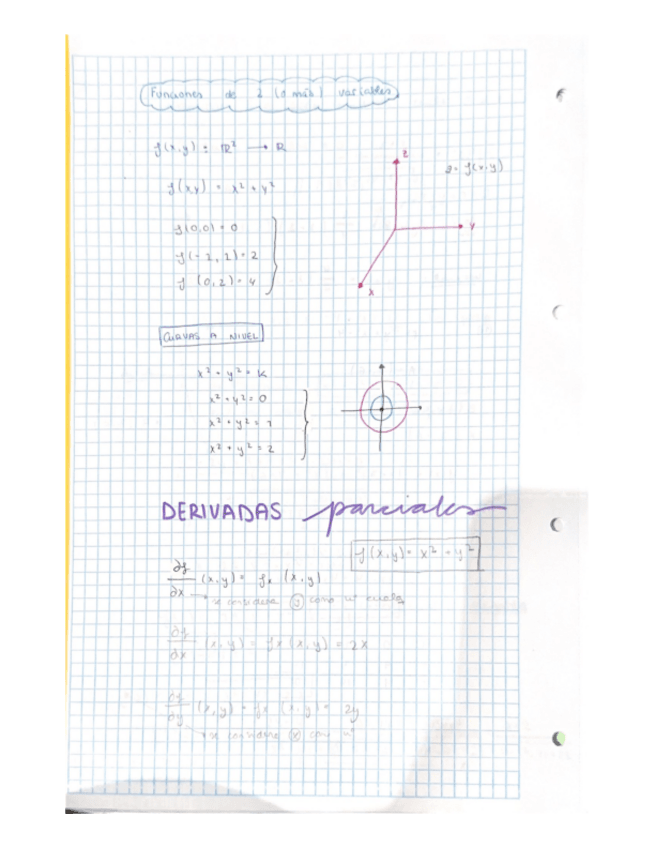 Funciones de 2 (o más) variables
f(x,y) = ℝ² → ℝ
z
z = f(x,y)
f(x,y) = x² + y²
f(0,0) = 0
y
f(-1,1) = 2
f(0,2) = 4
x
CURVAS A NIVEL
x² + y² = K
x² + y² = 0
x² + y² = 1
x² + y² = 2
DERIVADAS parciales
f(x,y) = x² + y²
∂f/∂x (x,y) = fx (x,y)
→ se considera y como nº
∂f/∂x (x,y) = fx (x,y) = 2x
∂f/∂y (x,y) = fx (x,y) = 2y
→ se considera x como nº